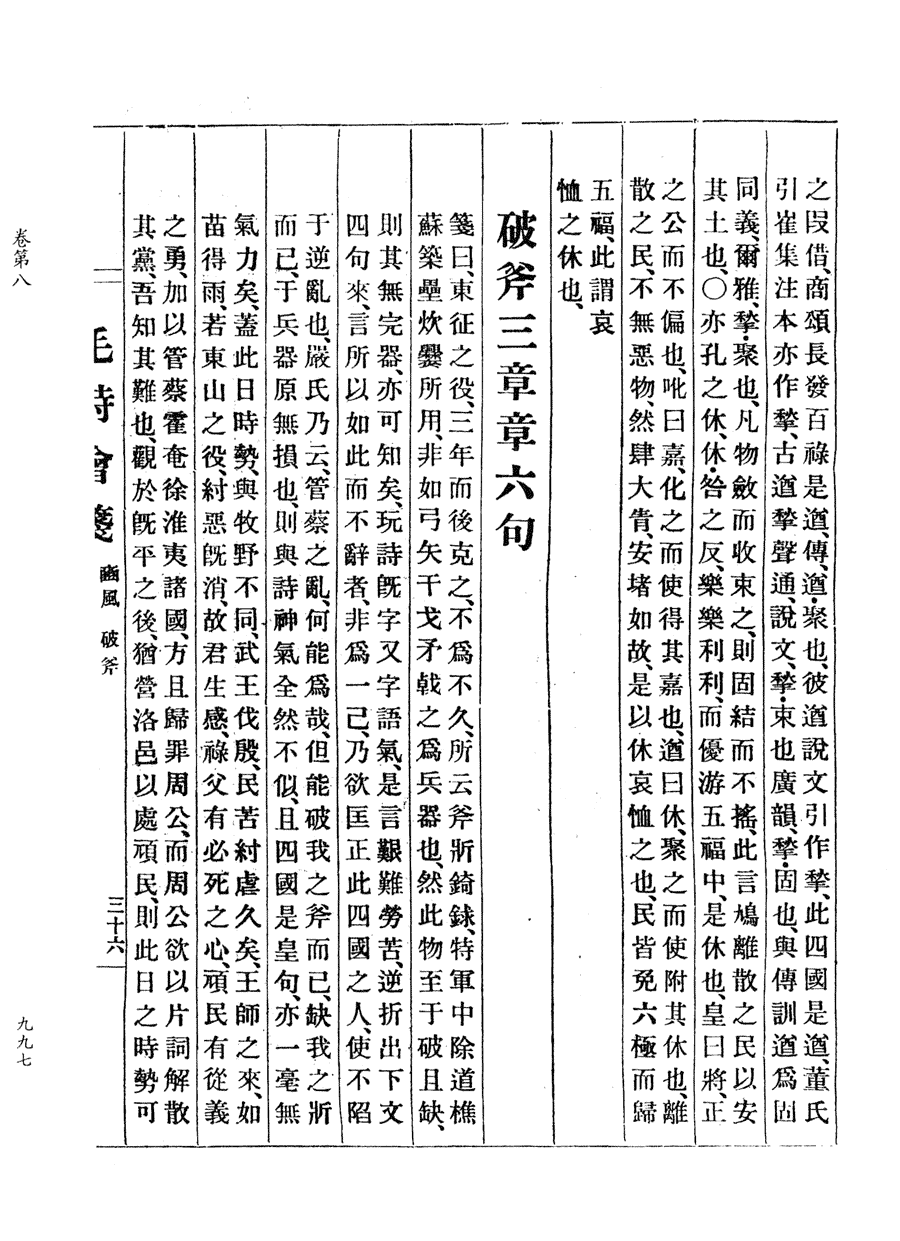 之叚借、商頌長發百祿是遒、傳、遒・聚也、彼遒說文引作揫、此四國是遒、董氏
引崔集注本亦作揫、古遒揫聲通、說文、揫・束也廣韻、揫・固也、與傳訓遒爲固
同義、爾雅、揫・聚也、凡物斂而收束之、則固結而不搖、此言鳩離散之民以安
其土也、〇亦孔之休、休・咎之反、樂樂利利、而優游五福中、是休也、皇曰將、正
之公而不偏也、吪曰嘉、化之而使得其嘉也、遒曰休、聚之而使附其休也、離
散之民、不無惡物、然肆大眚、安堵如故、是以休哀恤之也、民皆免六極而歸
五福、此謂哀
恤之休也、
破斧三章章六句
箋曰、東征之役、三年而後克之、不爲不久、所云斧斨錡銶、特軍中除道樵
蘇築壘炊爨所用、非如弓矢干戈矛戟之爲兵器也、然此物至于破且缺、
則其無完器、亦可知矣、玩詩旣字又字語氣、是言艱難勞苦、逆折出下文
四句來、言所以如此而不辭者、非爲一己、乃欲匡正此四國之人、使不陷
于逆亂也、嚴氏乃云、管蔡之亂、何能爲哉、但能破我之斧而已、缺我之斨
而已、于兵器原無損也、則與詩神氣全然不似、且四國是皇句、亦一毫無
氣力矣、蓋此日時勢、與牧野不同、武王伐殷、民苦紂虐久矣、王師之來、如
苗得雨、若東山之役、紂惡旣消、故君生感、祿父有必死之心、頑民有從義
之勇、加以管蔡霍奄徐淮夷諸國、方且歸罪周公、而周公欲以片詞解散
其黨、吾知其難也、觀於旣平之後、猶營洛邑以處頑民、則此日之時勢可
毛詩會箋 豳風 破斧 三十六
卷第八
九九七